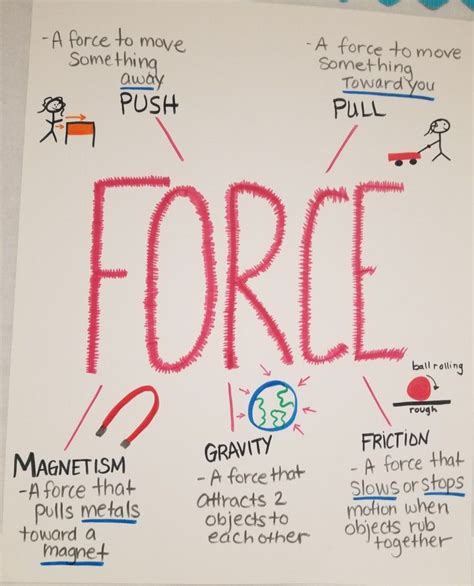 - A force to move
Something
away
PUSH
- A force to move
something
Toward you
PULL
FORCE
MAGNETISM
- A force that
pulls metals
toward a
magnet
GRAVITY
- A force that
attracts 2
objects to
each other
ball rolling
rough
FRICTION
- A force that
slows or stops
motion when
objects rub
together